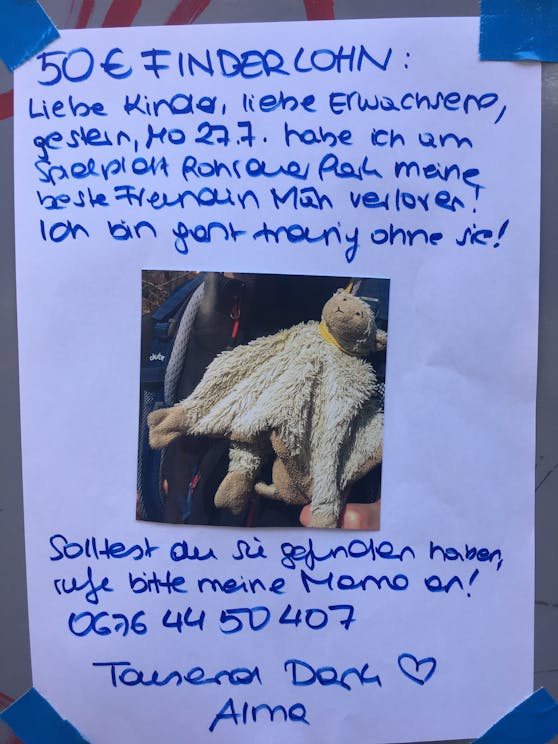 50 € FINDERLOHN:
Liebe Kinder, liebe Erwachsene,
gestern, Mo 27.7. habe ich am
Spielplatz Rohrauer Park meine
beste Freundin Mäh verloren!
Ich bin ganz traurig ohne sie!
deuter
Solltest du sie gefunden haben,
rufe bitte meine Mama an!
0676 44 50 407
Tausend Dank ♡
Alma